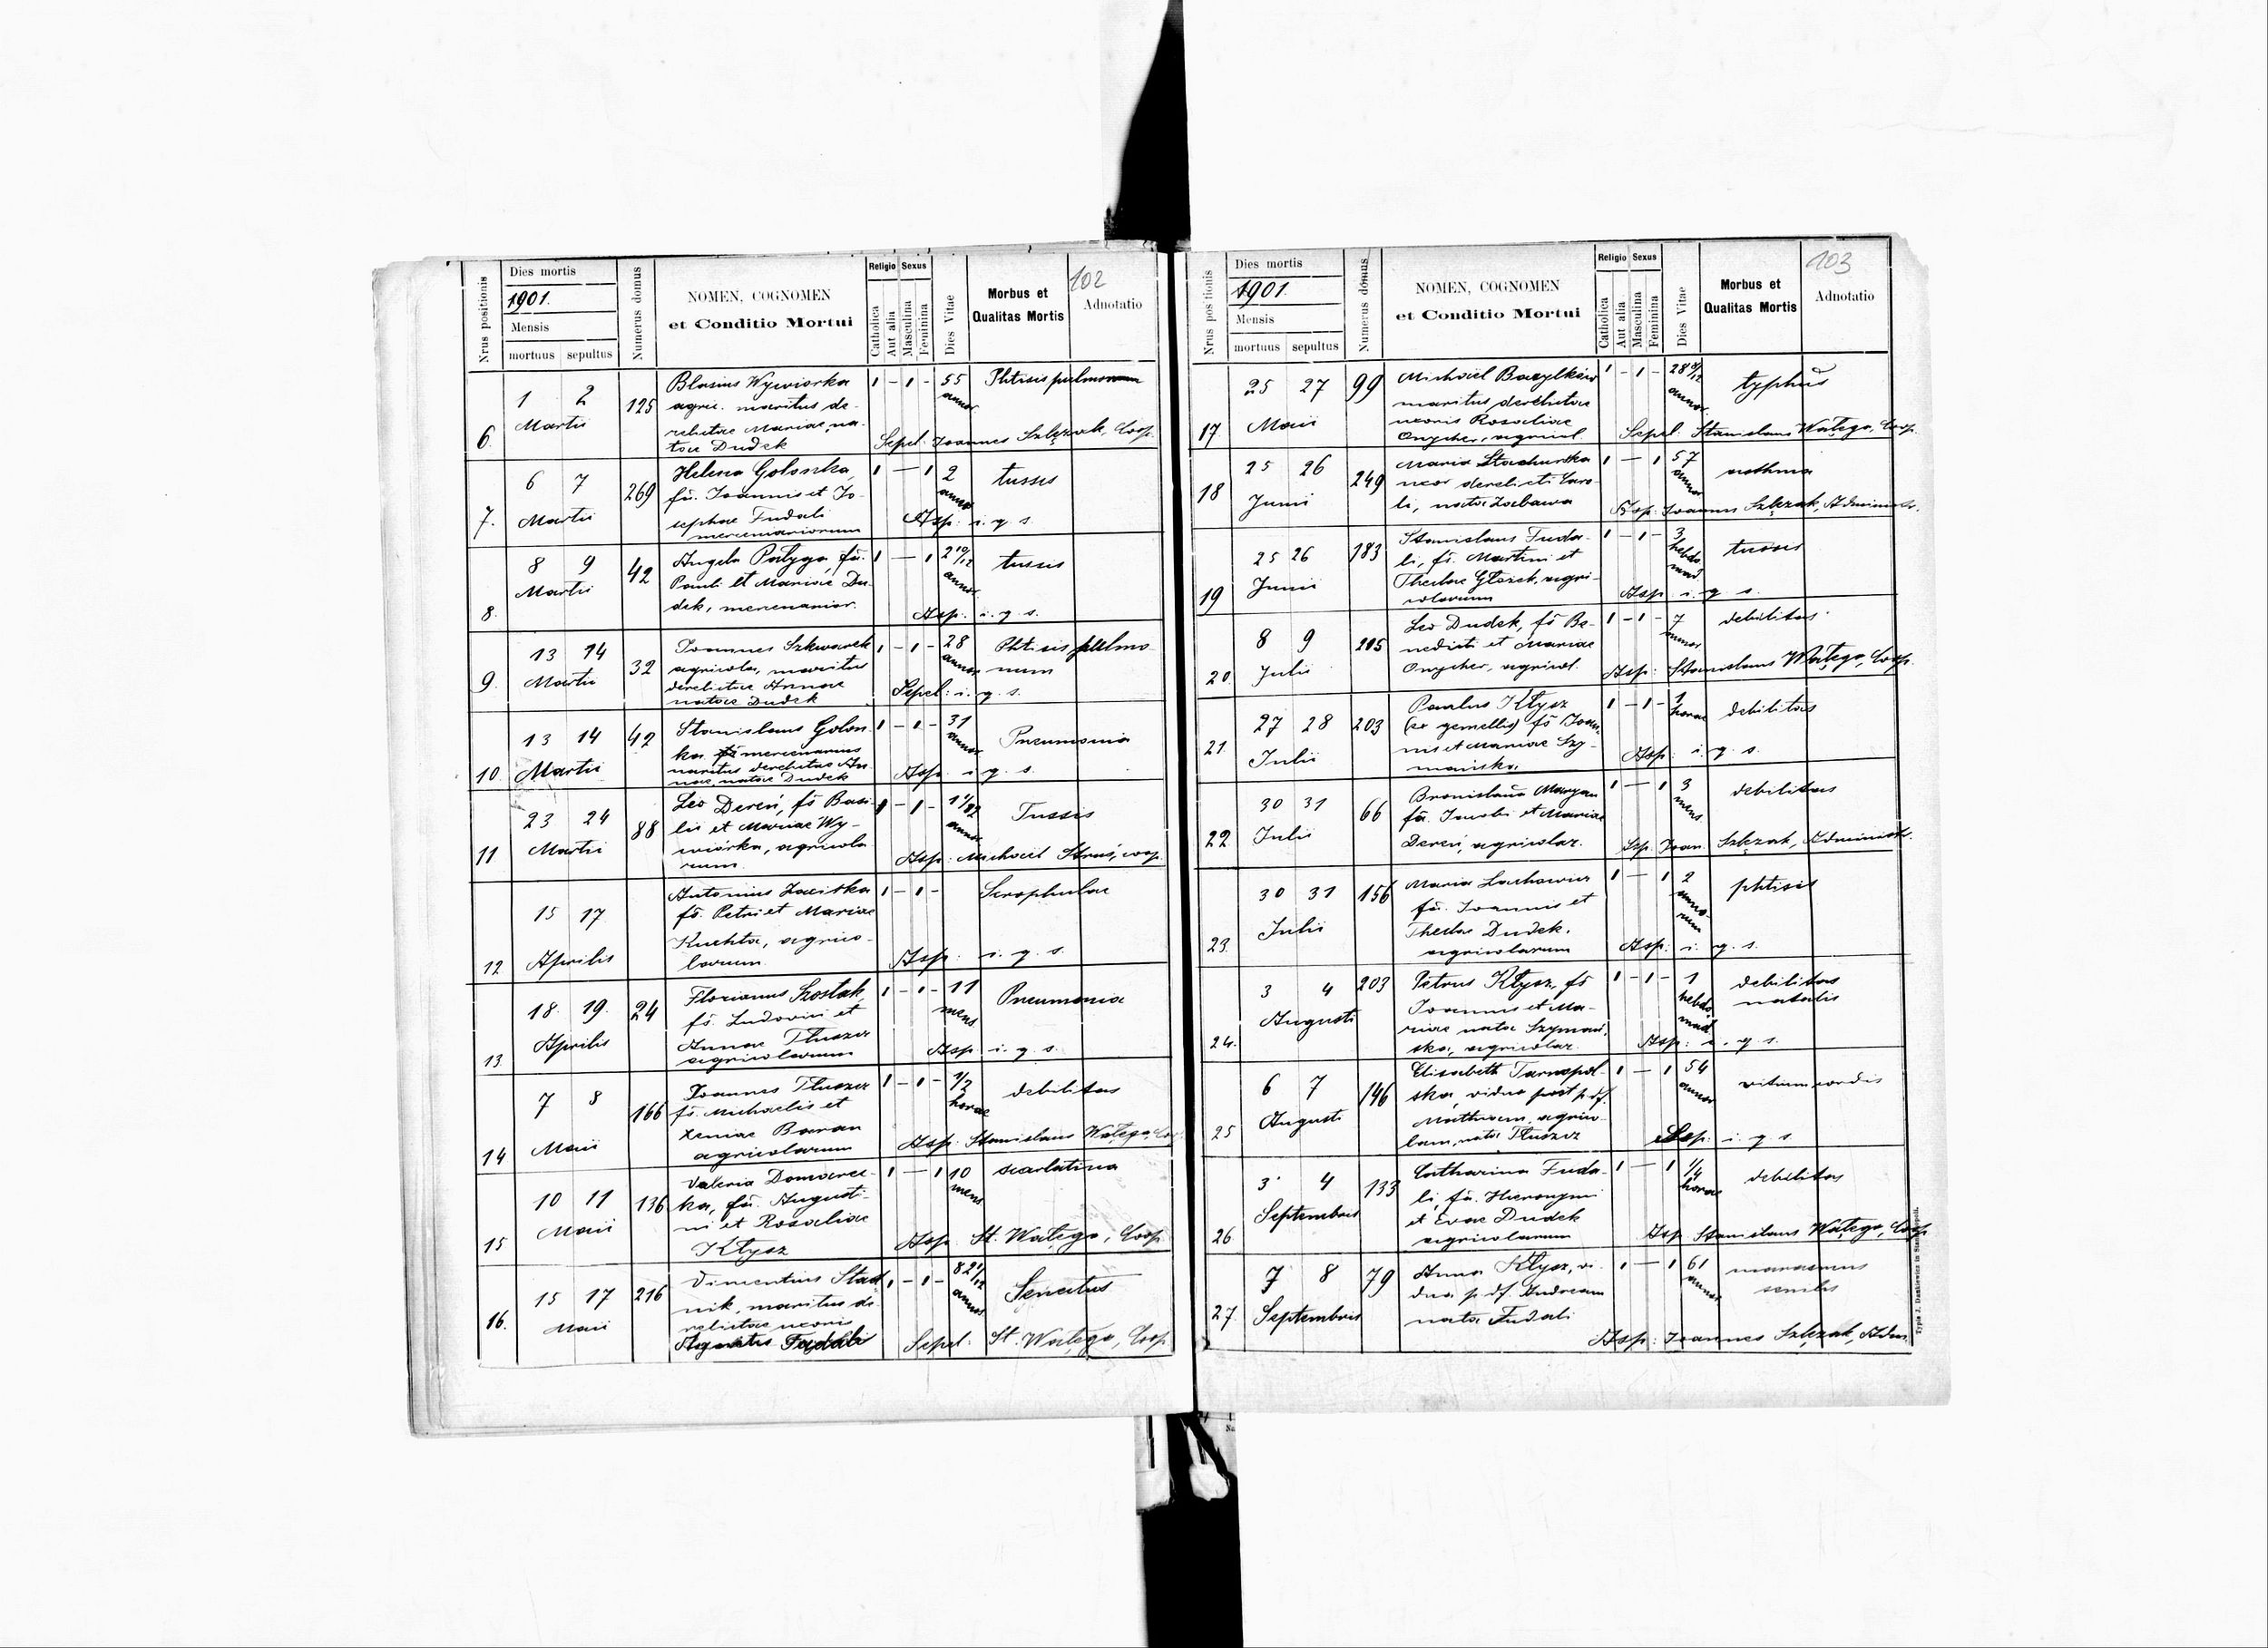 102
Nrus positionis
Dies mortis
1901.
Mensis
mortuus sepultus
Numerus domus
NOMEN, COGNOMEN
et Conditio Mortui
Religio Sexus
Catholica
Aut alia
Masculina
Feminina
Dies Vitae
Morbus et
Qualitas Mortis
Adnotatio
6. 1 2 Martii 125
Blasius Wywiorka
agric. maritus de-
relictae Mariae, na-
tae Dudek
1 - 1 - 55 annor. Phtisis pulmonum
Sepel. Joannes Szlęzak, Coop.
7. 6 7 Martii 269
Helena Golonka,
fa. Joannis et Jo-
sephae Fudali
mercenariorum
1 - 1 2 annor tussis
Asp: i. q. s.
8. 8 9 Martii 42
Angela Pałyga, fa.
Pauli et Mariae Du-
dek, mercenarior.
1 - 1 2 10/12 annor. tussis
Asp: i. q. s.
9. 13 14 Martii 32
Joannes Szkwarek
agricola, maritus
derelictae Annae
natae Dudek
1 - 1 - 28 annor. Phtisis pulmo-
num
Sepel: i. q. s.
10. 13 14 Martii 42
Stanislaus Golon-
ka mercenarius
maritus derelictae An-
nae, natae Dudek
1 - 1 - 31 annor. Pneumonia
Asp. i. q. s.
11 23 24 Martii 88
Leo Dereń, fs Basi-
lii et Mariae Wy-
wiórka, agricola-
rum.
- 1 - annor. Tussis
Asp: Michael Struś, coop.
12 15 17 Aprilis
Antonius
fs. Petri et Mariae
Kuchta, agrico-
larum.
1 - 1 - Scrophulae
Asp: i. q. s.
13 18. 19. Aprilis 24
Florianus Szostak,
fs. Ludovici et
Annae Tłuszcz
agricolarum
1 - 1 - 11 mens Pneumonia
Asp. i. q. s.
14 7 8 Maii 166
Joannes Tłuszcz
fs. Michaelis et
Xeniae Baran
agricolarum
1 - 1 - 1/2 horae debilitas
Asp: Stanislaus Watęga, Coop.
15 10 11 Maii 136
Valeria Domarec-
ka, fa. Augusti-
ni et Rosaliae
Kłysz
1 - 1 10 mens scarlatina
Asp. St. Watęga, Coop.
16. 15 17 Maii 216
Vincentius Stad-
nik, maritus de-
relictae uxoris
Agnetis Fudali
1 - 1 - annor Senectus
Sepel: St. Watęga, Coop.
103
Nrus positionis
Dies mortis
1901.
Mensis
mortuus sepultus
Numerus domus
NOMEN, COGNOMEN
et Conditio Mortui
Religio Sexus
Catholica
Aut alia
Masculina
Feminina
Dies Vitae
Morbus et
Qualitas Mortis
Adnotatio
17. 25 27 Maii 99
Michael Bazylków
maritus derelictae
uxoris Rosaliae
Onycher, agricol.
1 - 1 - annor. typhus
Sepel. Stanislaus Watęga, Coop.
18 25 26 Junii 249
Maria Stachurska
uxor derelicti Caro-
li, nata Zabawa
1 - 1 57 annor asthma
Asp: Joannes Szlęzak, Administr.
19 25 26 Junii 183
Stanislaus Fuda-
li, fs. Martini et
Theclae Głozek, agri-
colarum
1 - 1 - 3 hebdo-
mad. tussis
Asp. i. q. s.
20 8 9 Julii 205
Leo Dudek, fs Be-
nedicti et Mariae
Onycher, agricol.
1 - 1 - 7 annor debilitas
Asp: Stanislaus Watęga, Coop.
21. 27 28 Julii 203
Paulus Kłysz
(ex gemellis) fs Joan-
nis et Mariae Szy-
mańska.
1 - 1 - 1 horae debilitas
Asp: i. q. s.
22. 30 31 Julii 66
Bronislava Maryan
fa. Jacobi et Mariae
Dereń, agricolar.
1 - 1 3 mens debilitas
Asp. Joan. Szlęzak, Administr.
23. 30 31 Julii 156
Maria Lachowicz
fa. Joannis et
Theclae Dudek,
agricolarum
1 - 1 2 anno-
rum phtisis
Asp: i. q. s.
24. 3 4 Augusti 203
Petrus Kłysz, fs
Joannis et Ma-
riae nata Szymań-
ska, agricolar.
1 - 1 - 1 hebdo-
mad. debilitas
natalis
Asp: i. q. s.
25 6 7 Augusti 146
Elisabeth Tarnopol-
ska, vidua post p. df.
Mathaeum, agrico-
lam, nata Tłuszcz
1 - 1 54 annor vitium cordis
Asp: i. q. s.
26. 3 4 Septembris 133
Catharina Fuda-
li, fa. Hieronymi
et Evae Dudek
agricolarum
1 - 1 1/4 horae debilitas
Asp. Stanislaus Watęga, Coop.
27. 7 8 Septembris 79
Anna Kłysz, vi-
dua p. df. Andream
nata Fudali
1 - 1 61 annor marasmus
senilis
Asp: Joannes Szlęzak, Adm.